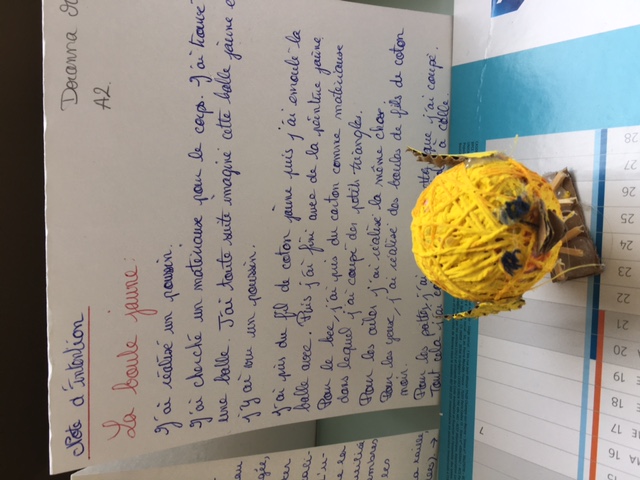 Doranna
A2.
Note d'intention
La boule jaune:
J'ai réalisé un poussin.
J'ai cherché un materiaux pour le corps. J'ai trouvé
une balle. J'ai toute suite imaginé cette balle jaune e
j'y ai vu un poussin.
J'ai pris du fil de coton jaune puis j'ai enroulé la
balle avec. Puis j'ai fini avec de la peinture jaune.
Pour le bec, j'ai pris du carton comme materiaux
dans lequel j'ai coupé des petits triangles.
Pour les ailes j'ai réalisé la même chose
Pour les yeux, j'ai réalisé des boules de fils de coton
noir.
Pour les pattes, j'ai que j'ai coupé.
Tout cela, j'ai à colle.
28
27
26
25
24
23
22
21
20
19
18
17
16
7